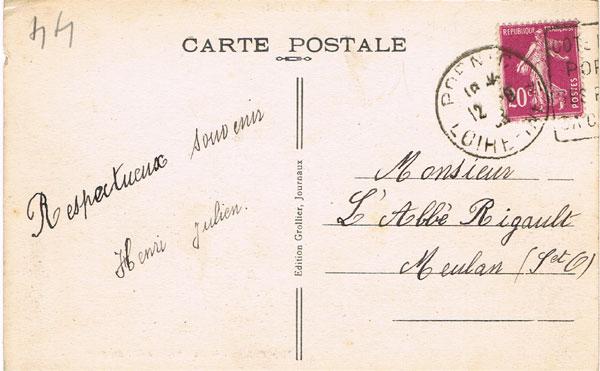 44
CARTE POSTALE
REPUBLIQUE FRANÇAISE
20c
POSTES
PORNIC
12
LOIRE
CÔTE
POR
Respectueux souvenir
Henri Julien.
Edition Grollier, Journaux
Monsieur
L'Abbé Rigault
Meulan (S et O)